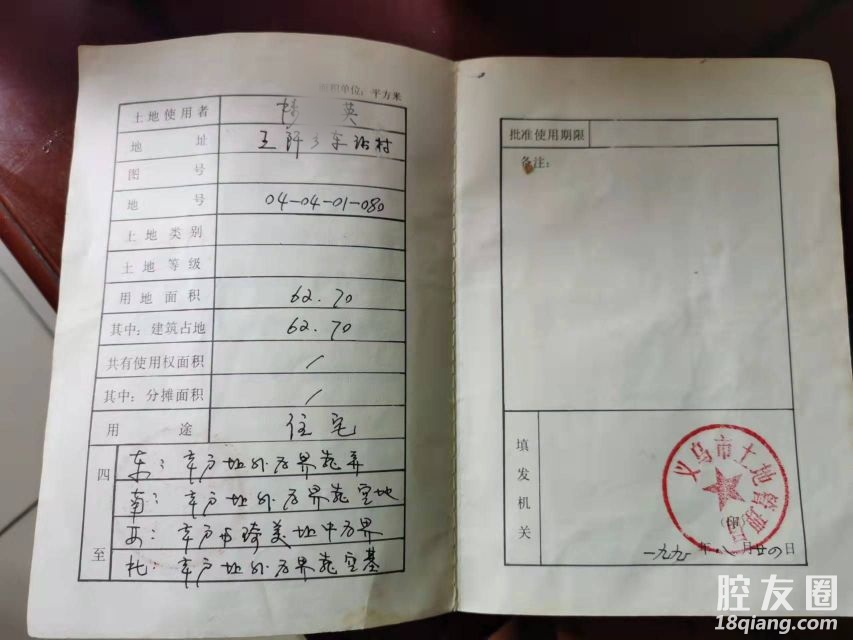 单位：平方米
土地使用者 英
地 址 王阡乡车路村
图 号
地 号 04-04-01-080
土 地 类 别
土 地 等 级
用 地 面 积 62.70
其中：建筑占地 62.70
共有使用权面积 /
其中：分摊面积 /
用 途 住宅
四至
东：本户址外为界靠弄
南：本户址外为界靠空地
西：本户与琦美址中为界
北：本户址外为界靠空基
批准使用期限
备注：
填发机关
义乌市土地管理局
（印）
一九九一年 八 月廿四日
腔友圈
18qiang.com